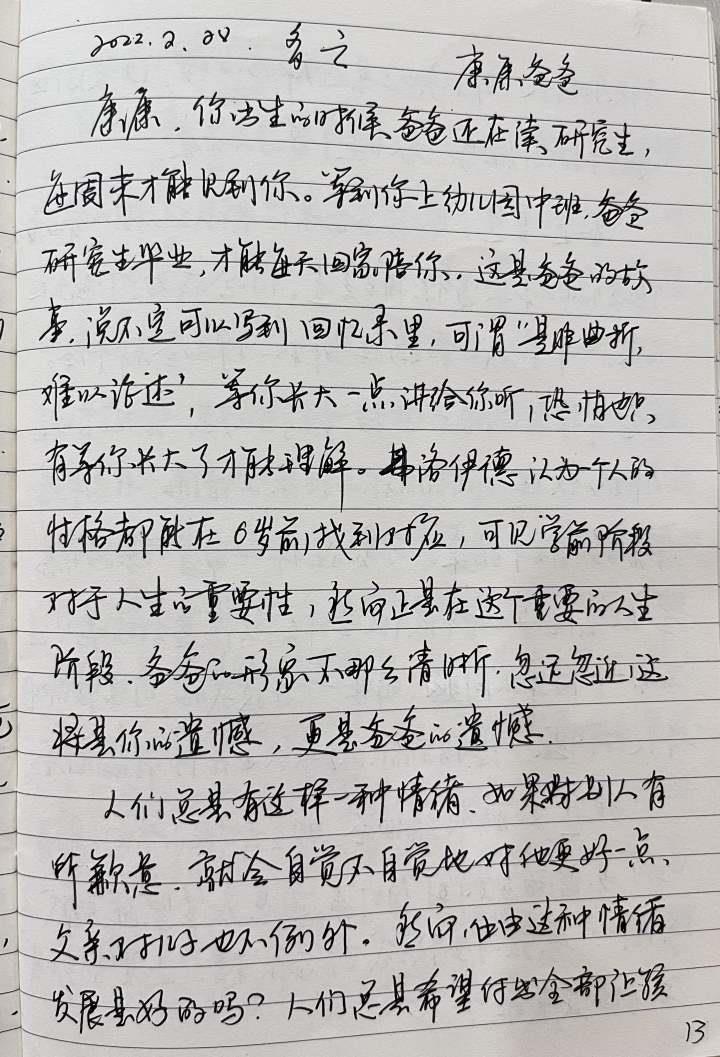 2022.2.28. 多云 康康爸爸
康康,你出生的时候,爸爸还在读研究生,
每周末才能见到你。等到你上幼儿园中班,爸爸
研究生毕业,才能每天回家陪你。这是爸爸的故
事,说不定可以写到回忆录里,可谓“是非曲折,
难以论述”,等你长大一点讲给你听,恐怕也只
有等你长大了才能理解。弗洛伊德认为一个人的
性格都能在6岁前找到对应,可见学前阶段
对于人生的重要性,然而正是在这个重要的人生
阶段,爸爸的形象不那么清晰,忽远忽近,这
将是你的遗憾,更是爸爸的遗憾.
人们总是有这样一种情绪,如果对别人有
所歉意,就会自觉不自觉地对他更好一点、
父亲对儿子也不例外。然而,任由这种情绪
发展是好的吗?人们总是希望付出全部让孩
13